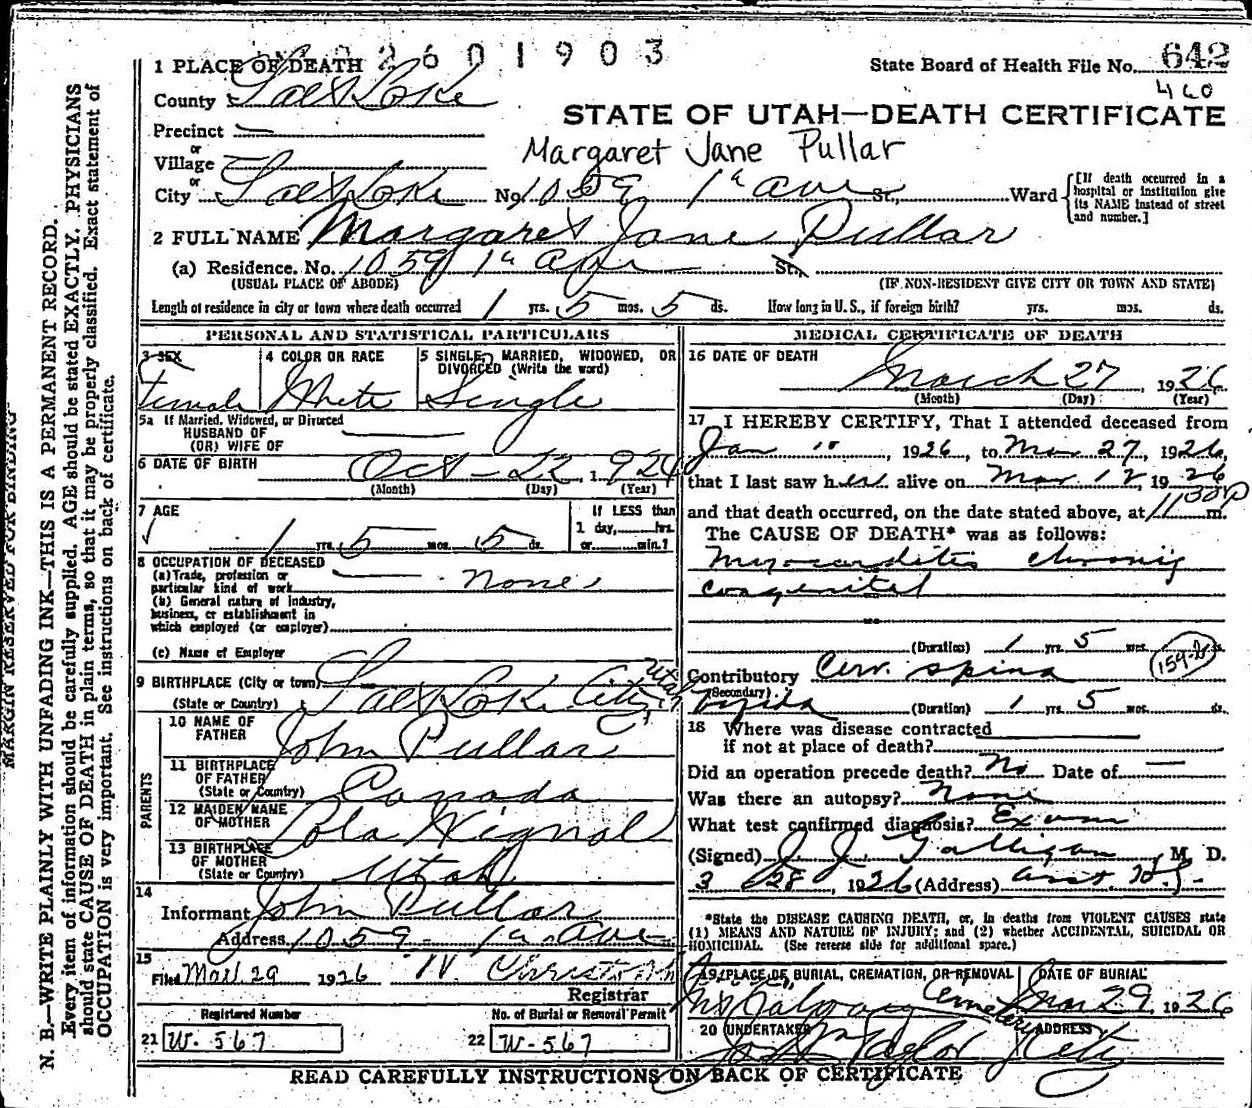 2601903
1 PLACE OF DEATH
State Board of Health File No. 642
460
County Salt Lake
STATE OF UTAH—DEATH CERTIFICATE
Precinct
or
Village
Margaret Jane Pullar
or
City Salt Lake No. 1059 1st ave St., Ward
[If death occurred in a hospital or institution give its NAME instead of street and number.]
2 FULL NAME Margaret Jane Pullar
(a) Residence. No. 1059 1st Ave St.,
(USUAL PLACE OF ABODE) (IF NON-RESIDENT GIVE CITY OR TOWN AND STATE)
Length of residence in city or town where death occurred 1 yrs. 5 mos. 5 ds. How long in U.S., if foreign birth? yrs. mos. ds.
PERSONAL AND STATISTICAL PARTICULARS
3 SEX
Female
4 COLOR OR RACE
White
5 SINGLE, MARRIED, WIDOWED, OR DIVORCED (Write the word)
Single
5a If Married, Widowed, or Divorced
HUSBAND OF
(OR) WIFE OF
6 DATE OF BIRTH Oct - 22, 1924
(Month) (Day) (Year)
7 AGE
1 yrs. 5 mos. 5 ds.
If LESS than
1 day, hrs.
or min.?
8 OCCUPATION OF DECEASED
(a) Trade, profession or
particular kind of work none
(b) General nature of industry,
business, or establishment in
which employed (or employer)
(c) Name of Employer
9 BIRTHPLACE (City or town) Salt Lake City Utah
(State or Country)
PARENTS
10 NAME OF
FATHER John Pullar
11 BIRTHPLACE
OF FATHER
(State or Country) Canada
12 MAIDEN NAME
OF MOTHER Lola
13 BIRTHPLACE
OF MOTHER
(State or Country) Utah
14
Informant John Pullar
Address 1059 - 1st ave
15
Filed Mar. 29 1926
Registrar
Registered Number
21 W-567
No. of Burial or Removal Permit
22 W-567
MEDICAL CERTIFICATE OF DEATH
16 DATE OF DEATH
March 27, 1926
(Month) (Day) (Year)
17 I HEREBY CERTIFY, That I attended deceased from
Jan , 1926, to Mar 27, 1926,
that I last saw her alive on Mar 12, 1926
and that death occurred, on the date stated above, at 1130P m.
The CAUSE OF DEATH* was as follows:
Myocarditis chronic
congenital
(Duration) 1 yrs. 5 mos.
Contributory Cerv. spina
(Secondary) bifida (Duration) 1 yrs. 5 mos. ds.
159-b
18 Where was disease contracted
if not at place of death?
Did an operation precede death? No Date of —
Was there an autopsy? None
What test confirmed diagnosis? Exam
(Signed) J. J. Galligan, M. D.
3 28, 1926 (Address)
*State the DISEASE CAUSING DEATH, or, in deaths from VIOLENT CAUSES state
(1) MEANS AND NATURE OF INJURY; and (2) whether ACCIDENTAL, SUICIDAL OR
HOMICIDAL. (See reverse side for additional space.)
19 PLACE OF BURIAL, CREMATION, OR REMOVAL
Mt Calvary Cemetery
DATE OF BURIAL
Mar 29, 1926
20 UNDERTAKER
Taylor
ADDRESS
City
READ CAREFULLY INSTRUCTIONS ON BACK OF CERTIFICATE
MARGIN RESERVED FOR BINDING
N. B.—WRITE PLAINLY WITH UNFADING INK—THIS IS A PERMANENT RECORD.
Every item of information should be carefully supplied. AGE should be stated EXACTLY. PHYSICIANS
should state CAUSE OF DEATH in plain terms, so that it may be properly classified. Exact statement of
OCCUPATION is very important. See instructions on back of certificate.